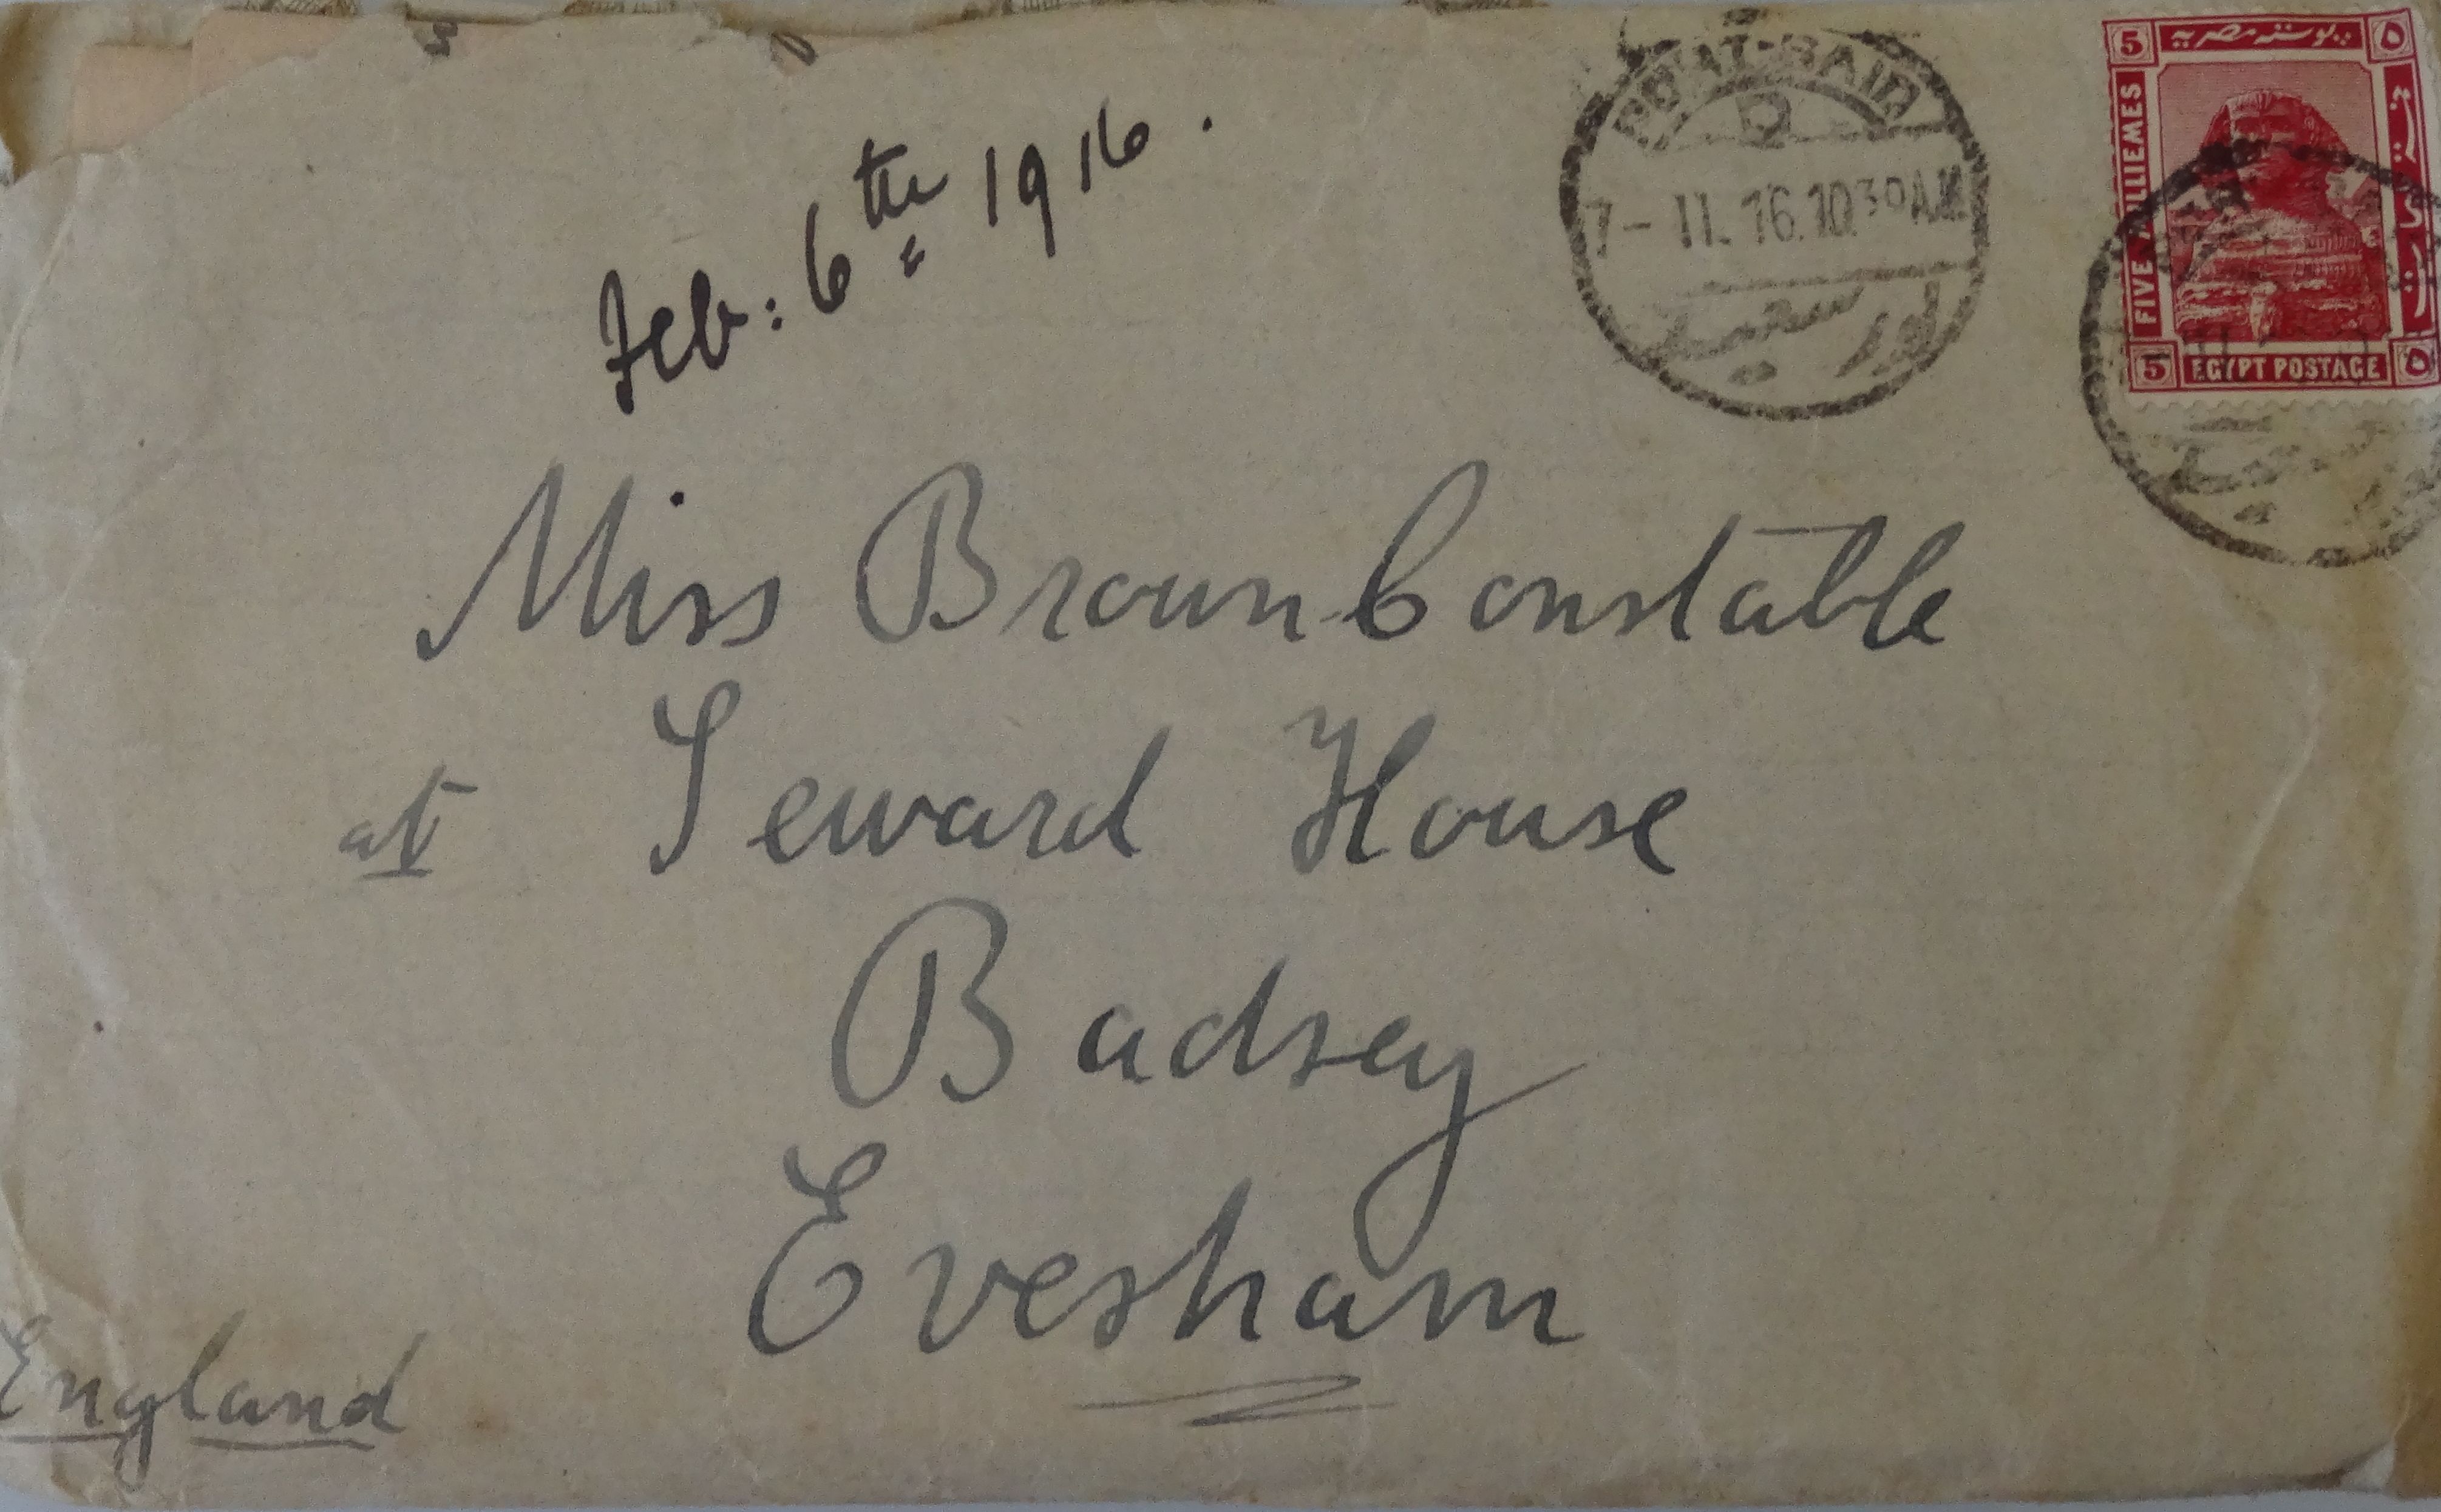 Feb: 6th 1916.
PORT-SAID
D
7-II.16.10 30 AM
بور سعيد
بوسته مصريه
5 ٥
FIVE MILLIEMES
5 EGYPT POSTAGE ٥
Miss Broun Constable
at Seward House
Badsey
Evesham
England